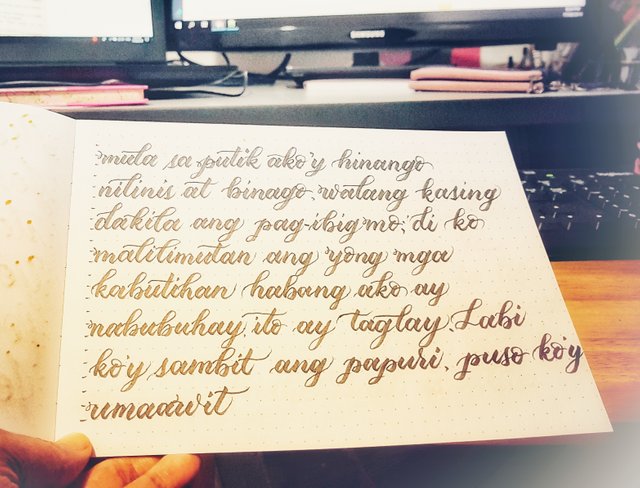 SAMSUNG
mula sa putik ako'y hinango
nilinis at binago. walang kasing
dakila ang pag-ibig mo, di ko
malilimutan ang 'yong mga
kabutihan habang ako ay
nabubuhay, ito ay taglay. Labi
ko'y sambit ang papuri, puso ko'y
umaawit